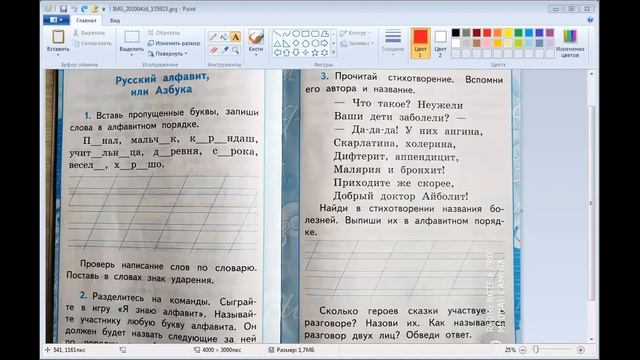 IMG_20200416_135923.jpg - Paint
Главная Вид
Вставить
Вырезать
Копировать
Буфер обмена
Выделить
Обрезать
Изменить размер
Повернуть
Изображение
Инструменты
Кисти
Контур
Заливка
Фигуры
Толщина
Цвет 1
Цвет 2
Изменение цветов
Цвета
Русский алфавит,
или Азбука
1. Вставь пропущенные буквы, запиши
слова в алфавитном порядке.
П__нал, мальч__к, к__р__ндаш,
учит__льн__ца, д__ревня, с__рока,
весел__, х__р__шо.
Проверь написание слов по словарю.
Поставь в словах знак ударения.
2. Разделитесь на команды. Сыграй-
те в игру «Я знаю алфавит». Называй-
те участнику любую букву алфавита. Он
должен будет назвать следующие за ней
3. Прочитай стихотворение. Вспомни
его автора и название.
— Что такое? Неужели
Ваши дети заболели? —
— Да-да-да! У них ангина,
Скарлатина, холерина,
Дифтерит, аппендицит,
Малярия и бронхит!
Приходите же скорее,
Добрый доктор Айболит!
Найди в стихотворении названия бо-
лезней. Выпиши их в алфавитном поряд-
ке.
Сколько героев сказки участвуе
разговоре? Назови их. Как называется
разговор двух лиц? Обведи ответ.
541, 1161пкс
4000 × 3000пкс
Размер: 1,7МБ
25%